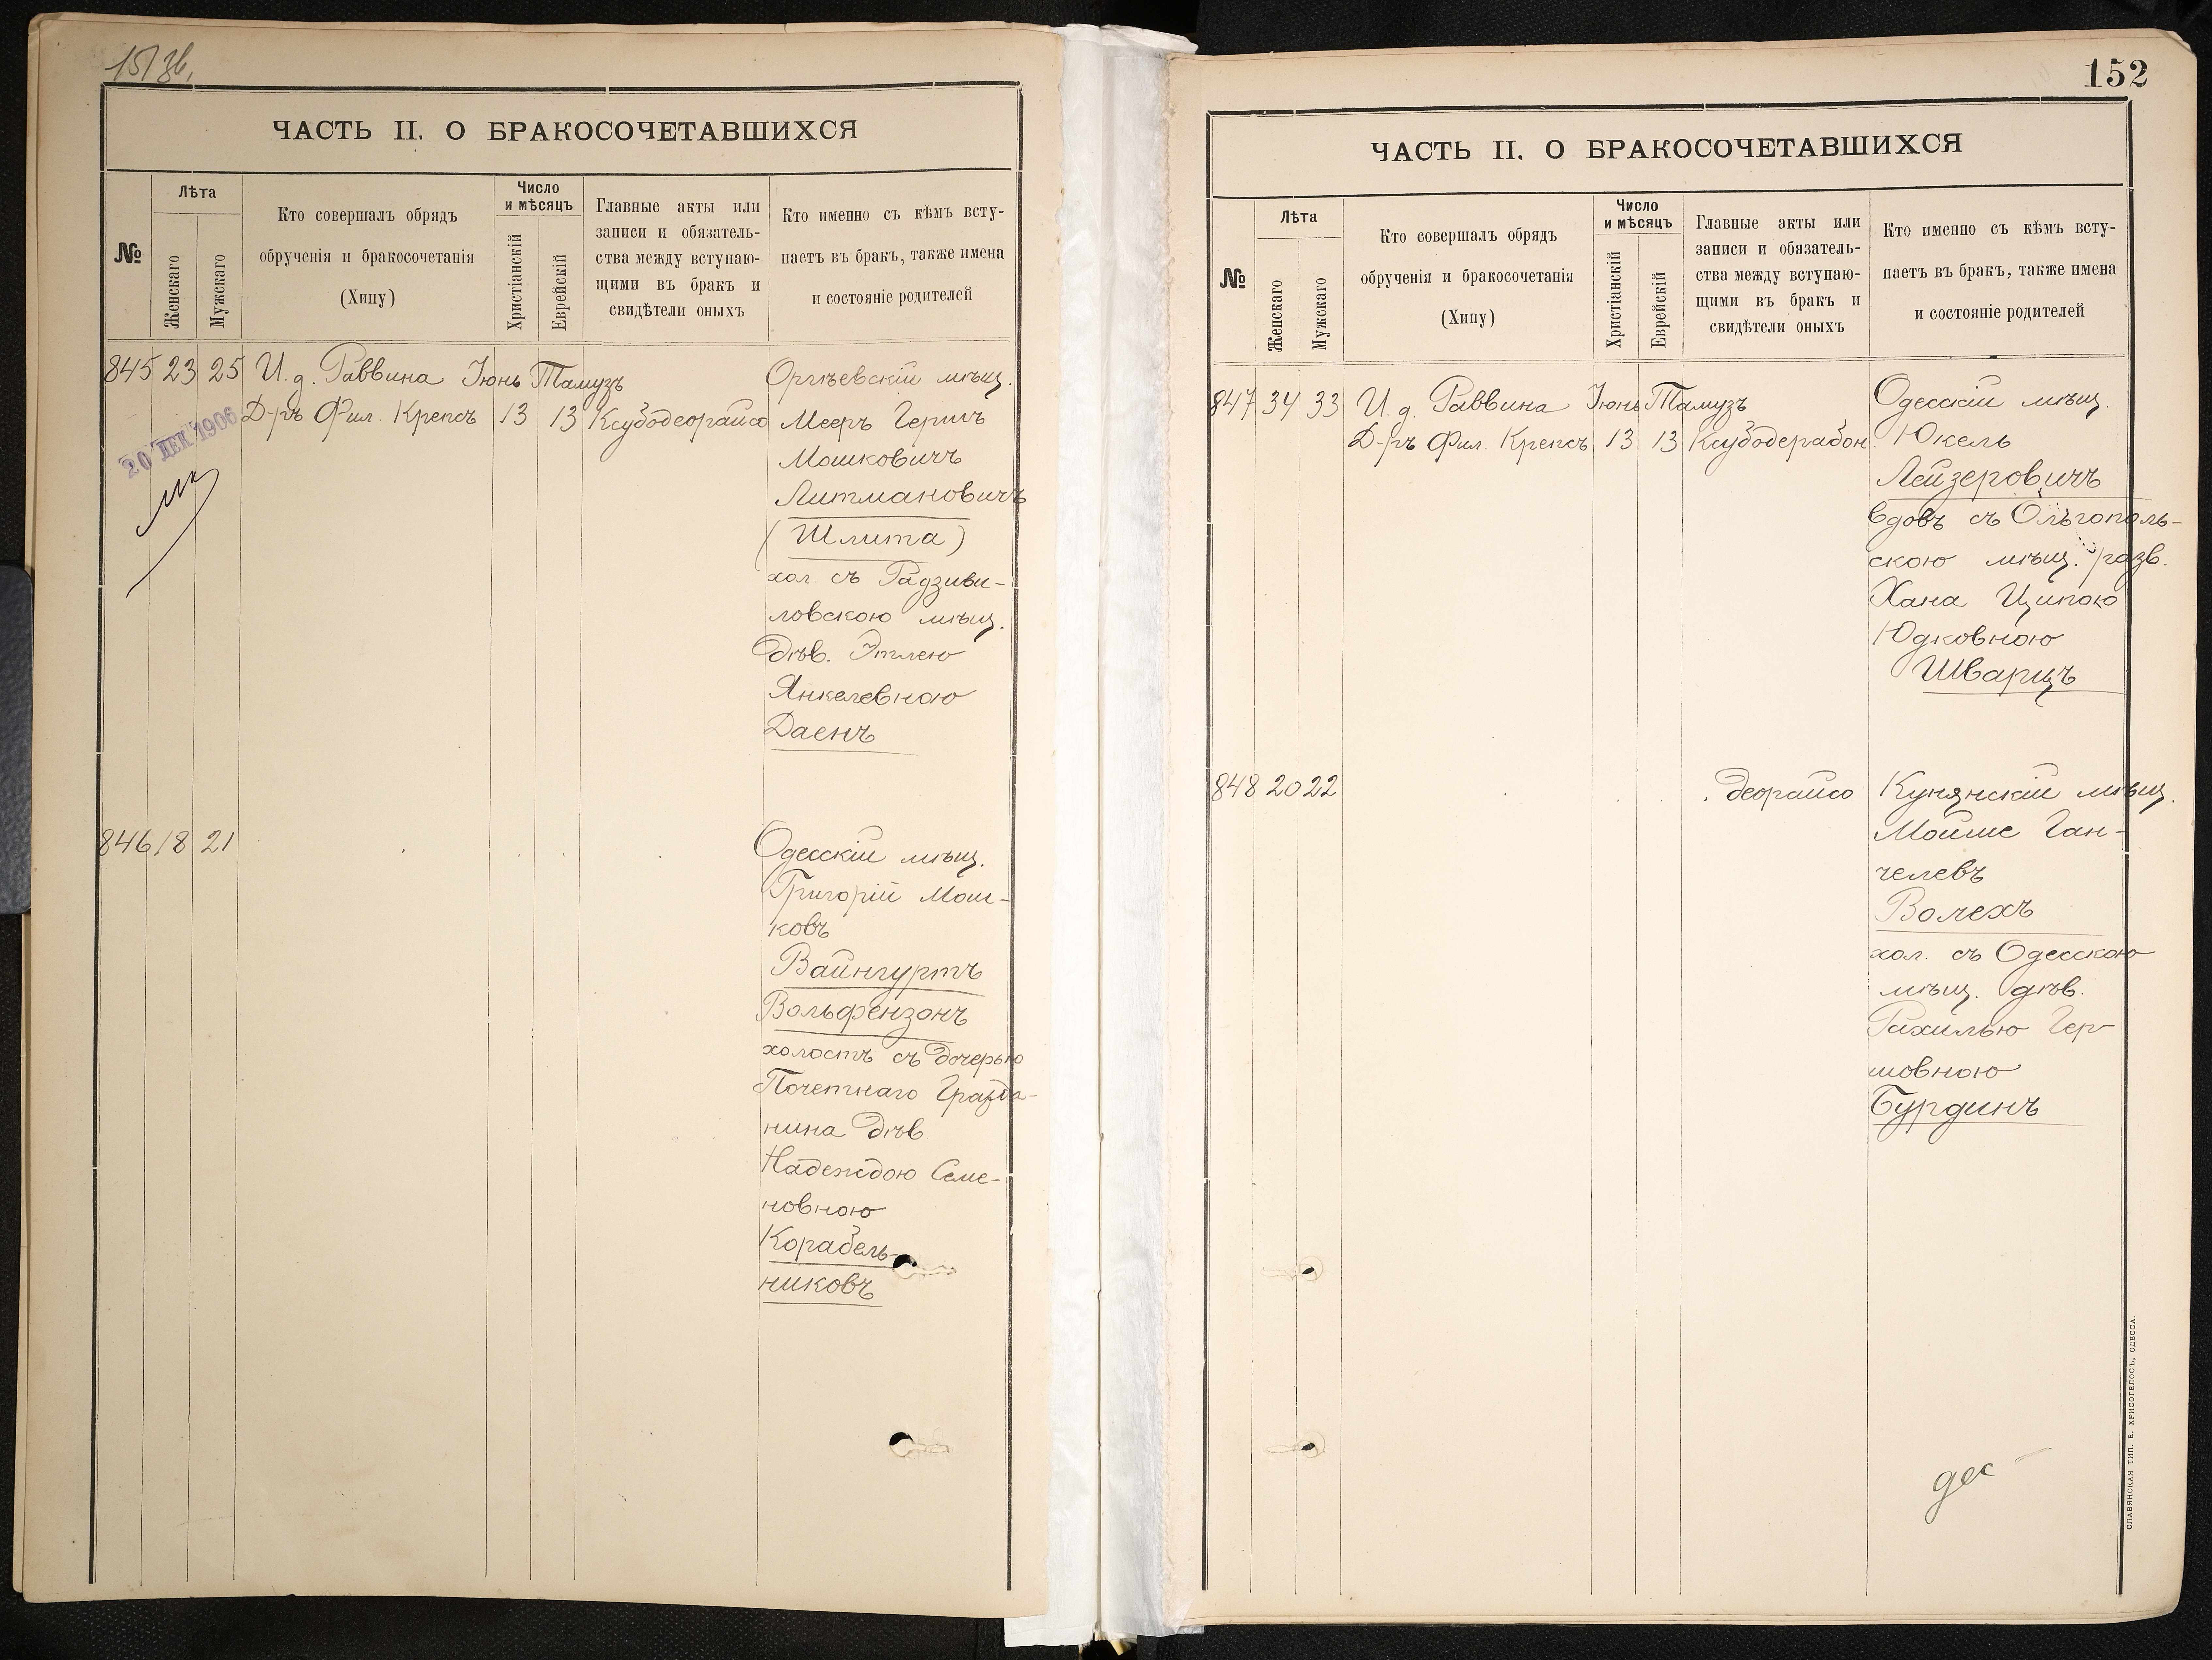 151 зв.
ЧАСТЬ II. О БРАКОСОЧЕТАВШИХСЯ
№
Лѣта
Женскаго
Мужскаго
Кто совершалъ обрядъ
обрученія и бракосочетанія
(Хипу)
Число
и мѣсяцъ
Христіанскій
Еврейскій
Главные акты или
записи и обязатель-
ства между вступаю-
щими въ бракъ и
свидѣтели оныхъ
Кто именно съ кѣмъ всту-
паетъ въ бракъ, также имена
и состояніе родителей
845 23 25 И. д. Раввина Іюнь Тамузъ
Д-ръ Фил. Крепсъ 13 13 Ксубодеорайсо
20 ДЕК 1906
Оргѣевскій мѣщ.
Мееръ Гершъ
Мошковичъ
Литмановичъ
(Шлита)
хол. съ Радзиви-
ловскою мѣщ.
дѣв. Этлею
Янкелевною
Даенъ
846 18 21
Одесскій мѣщ.
Григорій Мош-
ковъ
Вайнгуртъ
Вольфензонъ
холостъ съ дочерью
Почетнаго Гражда-
нина дѣв.
Надеждою Семе-
новною
Корабель-
никовъ
152
ЧАСТЬ II. О БРАКОСОЧЕТАВШИХСЯ
№
Лѣта
Женскаго
Мужскаго
Кто совершалъ обрядъ
обрученія и бракосочетанія
(Хипу)
Число
и мѣсяцъ
Христіанскій
Еврейскій
Главные акты или
записи и обязатель-
ства между вступаю-
щими въ бракъ и
свидѣтели оныхъ
Кто именно съ кѣмъ всту-
паетъ въ бракъ, также имена
и состояніе родителей
847 34 33 И. д. Раввина Іюнь Тамузъ
Д-ръ Фил. Крепсъ 13 13 Ксубодерабон.
Одесскій мѣщ.
Юкель
Лейзеровичъ
вдовъ съ Ольгополь-
скою мѣщ. разв.
Хана Ципою
Юдковною
Шварцъ
848 20 22 деорайсо
Кунянскій мѣщ.
Мойше Ган-
челевъ
Волехъ
хол. съ Одесскою
мѣщ. дѣв.
Рахилью Гер-
шовною
Бурдинъ
СЛАВЯНСКАЯ ТИП. Е. ХРИСОГЕЛОСЪ, ОДЕССА.